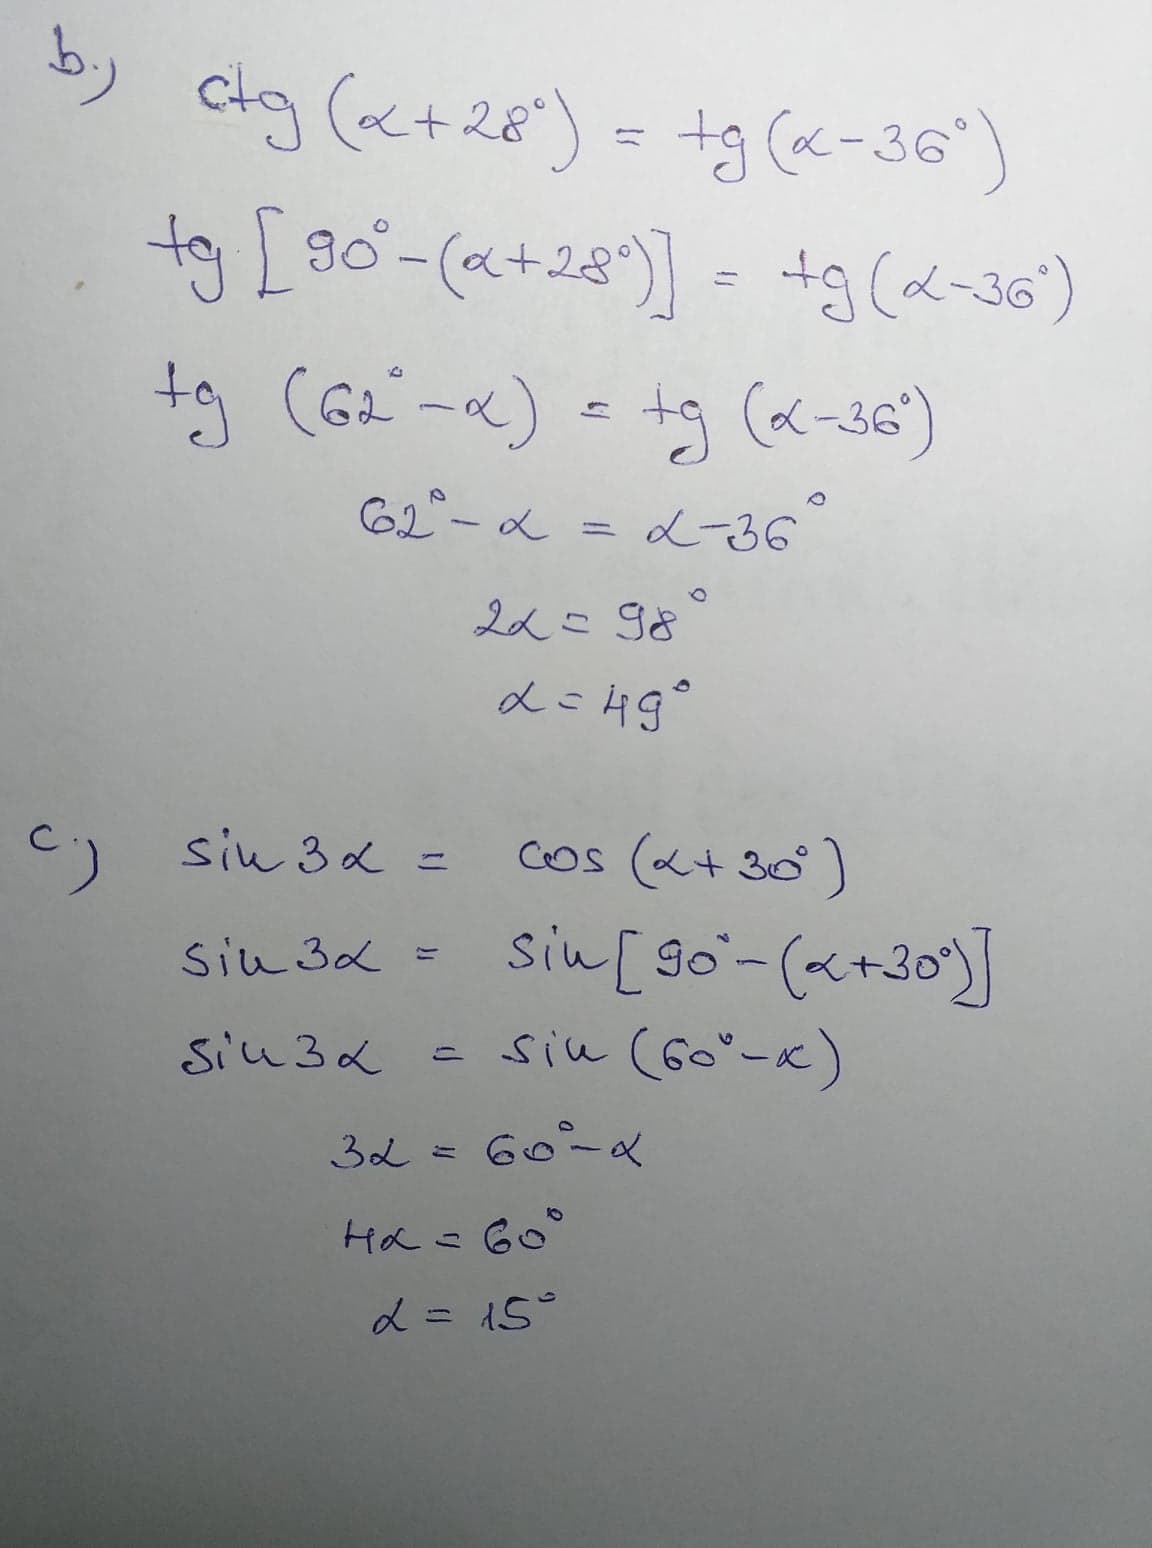 b.) ctg (α+28°) = tg (α-36°)
tg [90°-(α+28°)] = tg (α-36°)
tg (62°-α) = tg (α-36°)
62°-α = α-36°
2α = 98°
α = 49°
c.) sin 3α = cos (α+30°)
sin 3α = sin [90°-(α+30°)]
sin 3α = sin (60°-α)
3α = 60°-α
4α = 60°
α = 15°